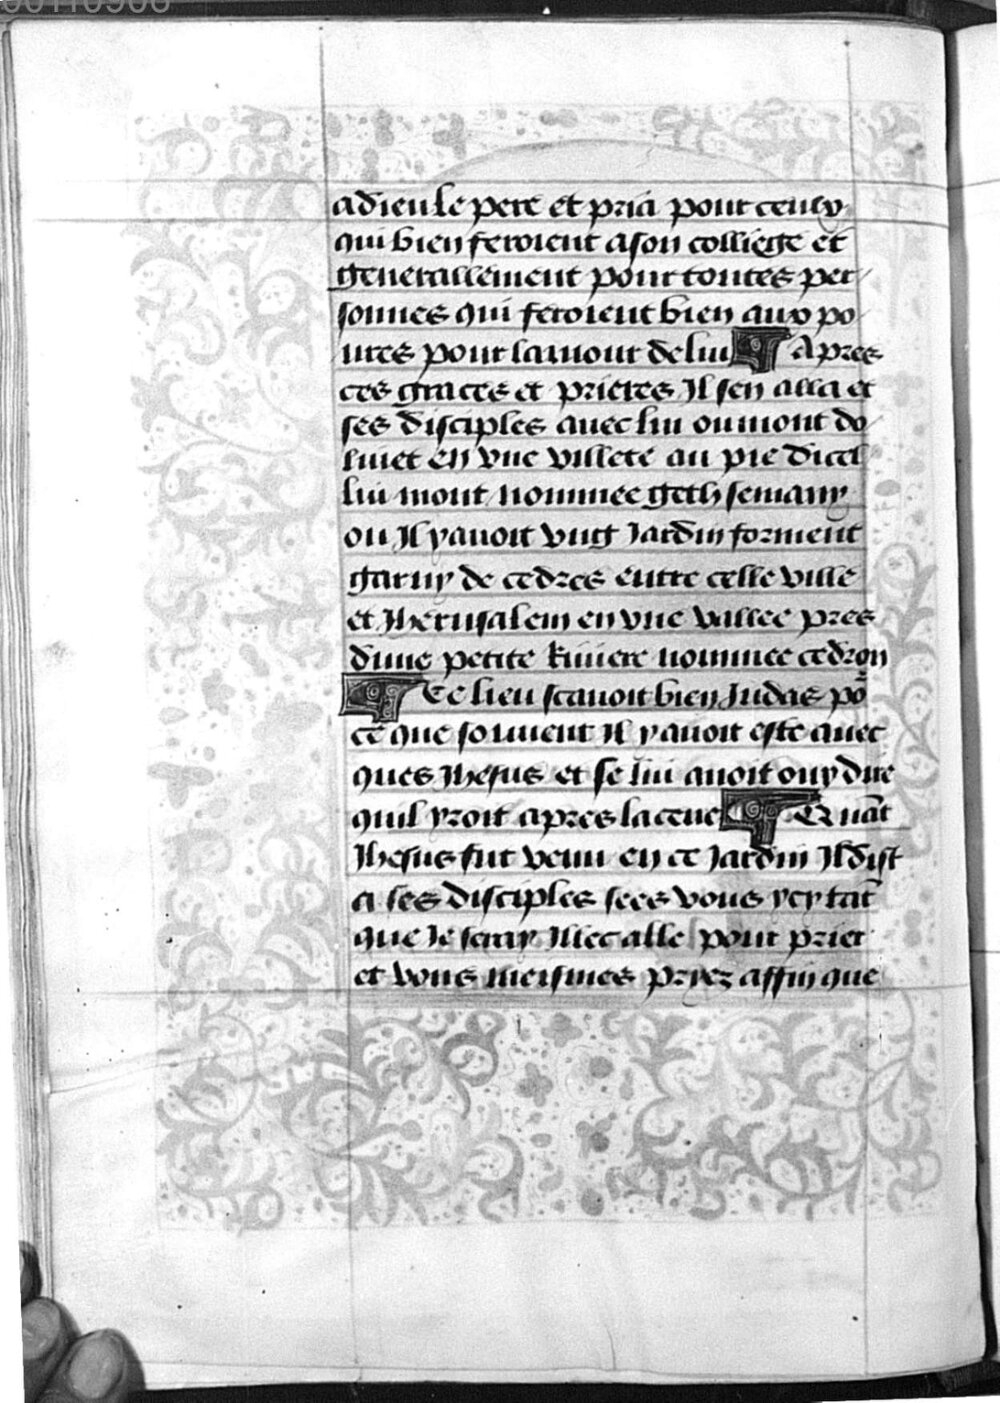 90110900
adieu le pere et pria pour ceulx
qui bien feroient a son colliege et
generallement pour toutes per
sonnes qui feroient bien aux po
ures pour lamour de lui Apres
ces graces et prieres Il sen alla et
ses disciples auec lui ou mont do
liuet en vne villete au pie dicel
lui mont nommee gethsemany
ou Il y auoit vng Jardin forment
garny de cedres entre celle ville
et Jherusalem en vne vallee pres
dune petite Riuiere nommee cedron
Ce lieu scauoit bien Judas po~
ce que souuent Il y auoit este auec
ques Jhesus et se lui auoit ouy dire
quil yroit apres la cene Quāt
Jhesus fut venu en ce Jardin Il dist
a ses disciples sees vous ycy tāt
que Je seray Illec alle pour prier
et vous meismes pryez affin que